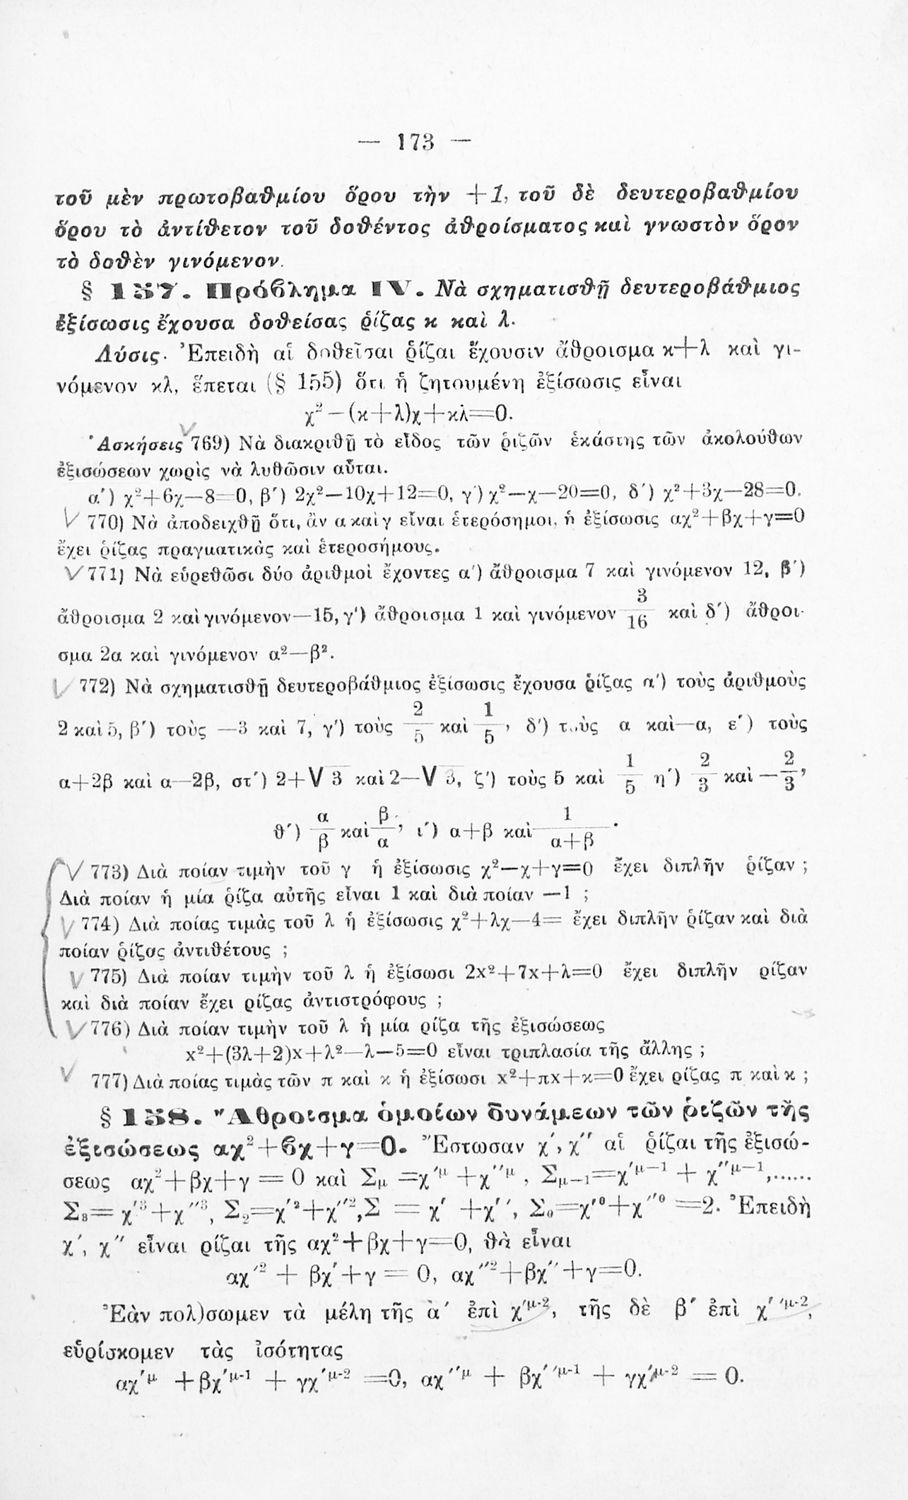 — 173 —
τοῦ μὲν πρωτοβαθμίου ὅρου τὴν +1, τοῦ δὲ δευτεροβαθμίου
ὅρου τὸ ἀντίθετον τοῦ δοθέντος ἀθροίσματος καὶ γνωστὸν ὅρον
τὸ δοθὲν γινόμενον.
§ 157. Πρόβλημα IV. Νὰ σχηματισθῇ δευτεροβάθμιος
ἐξίσωσις ἔχουσα δοθείσας ῥίζας κ καὶ λ.
Λύσις. Ἐπειδὴ αἱ δοθεῖσαι ῥίζαι ἔχουσιν ἄθροισμα κ+λ καὶ γι-
νόμενον κλ, ἕπεται (§ 155) ὅτι ἡ ζητουμένη ἐξίσωσις εἶναι
χ²—(κ+λ)χ+κλ=0.
Ἀσκήσεις 769) Νὰ διακριθῇ τὸ εἶδος τῶν ῥιζῶν ἑκάστης τῶν ἀκολούθων
ἐξισώσεων χωρὶς νὰ λυθῶσιν αὗται.
α') χ²+6χ—8=0, β') 2χ²—10χ+12=0, γ') χ²—χ—20=0, δ') χ²+3χ—28=0.
770) Νὰ ἀποδειχθῇ ὅτι, ἂν α καὶ γ εἶναι ἑτερόσημοι, ἡ ἐξίσωσις αχ²+βχ+γ=0
ἔχει ῥίζας πραγματικὰς καὶ ἑτεροσήμους.
771) Νὰ εὑρεθῶσι δύο ἀριθμοὶ ἔχοντες α') ἄθροισμα 7 καὶ γινόμενον 12, β')
ἄθροισμα 2 καὶ γινόμενον—15, γ') ἄθροισμα 1 καὶ γινόμενον 3/16 καὶ δ') ἄθροι-
σμα 2α καὶ γινόμενον α²—β².
772) Νὰ σχηματισθῇ δευτεροβάθμιος ἐξίσωσις ἔχουσα ῥίζας α') τοὺς ἀριθμοὺς
2 καὶ 5, β') τοὺς —3 καὶ 7, γ') τοὺς 2/5 καὶ 1/5, δ') τοὺς α καὶ—α, ε') τοὺς
α+2β καὶ α—2β, στ') 2+√3 καὶ 2—√3, ζ') τοὺς 5 καὶ 1/5 η') 2/3 καὶ —2/3,
θ') α/β καὶ β/α, ι') α+β καὶ 1/α+β.
773) Διὰ ποίαν τιμὴν τοῦ γ ἡ ἐξίσωσις χ²—χ+γ=0 ἔχει διπλῆν ῥίζαν ;
Διὰ ποίαν ἡ μία ῥίζα αὐτῆς εἶναι 1 καὶ διὰ ποίαν —1 ;
774) Διὰ ποίας τιμὰς τοῦ λ ἡ ἐξίσωσις χ²+λχ—4= ἔχει διπλῆν ῥίζαν καὶ διὰ
ποίαν ῥίζας ἀντιθέτους ;
775) Διὰ ποίαν τιμὴν τοῦ λ ἡ ἐξίσωσι 2x²+7x+λ=0 ἔχει διπλῆν ρίζαν
καὶ διὰ ποίαν ἔχει ρίζας ἀντιστρόφους ;
776) Διὰ ποίαν τιμὴν τοῦ λ ἡ μία ρίζα τῆς ἐξισώσεως
x²+(3λ+2)x+λ²—λ—5=0 εἶναι τριπλασία τῆς ἄλλης ;
777) Διὰ ποίας τιμὰς τῶν π καὶ κ ἡ ἐξίσωσι x²+πx+κ=0 ἔχει ρίζας π καὶ κ ;
§ 158. Ἄθροισμα ὁμοίων δυνάμεων τῶν ῥιζῶν τῆς
ἐξισώσεως αχ²+βχ+γ=0. Ἔστωσαν χ', χ'' αἱ ῥίζαι τῆς ἐξισώ-
σεως αχ²+βχ+γ=0 καὶ Σμ=χ'μ+χ''μ, Σμ—1=χ'μ—1+χ''μ—1,......
Σ₃=χ'³+χ''³, Σ₂=χ'²+χ''², Σ=χ'+χ'', Σ₀=χ'⁰+χ''⁰=2. Ἐπειδὴ
χ', χ'' εἶναι ρίζαι τῆς αχ²+βχ+γ=0, θὰ εἶναι
αχ'²+βχ'+γ=0, αχ''²+βχ''+γ=0.
Ἐὰν πολ)σωμεν τὰ μέλη τῆς ἀ' ἐπὶ χ'μ-2, τῆς δὲ β' ἐπὶ χ''μ-2,
εὑρίσκομεν τὰς ἰσότητας
αχ'μ+βχ'μ-1+γχ'μ-2=0, αχ''μ+βχ''μ-1+γχ''μ-2=0.